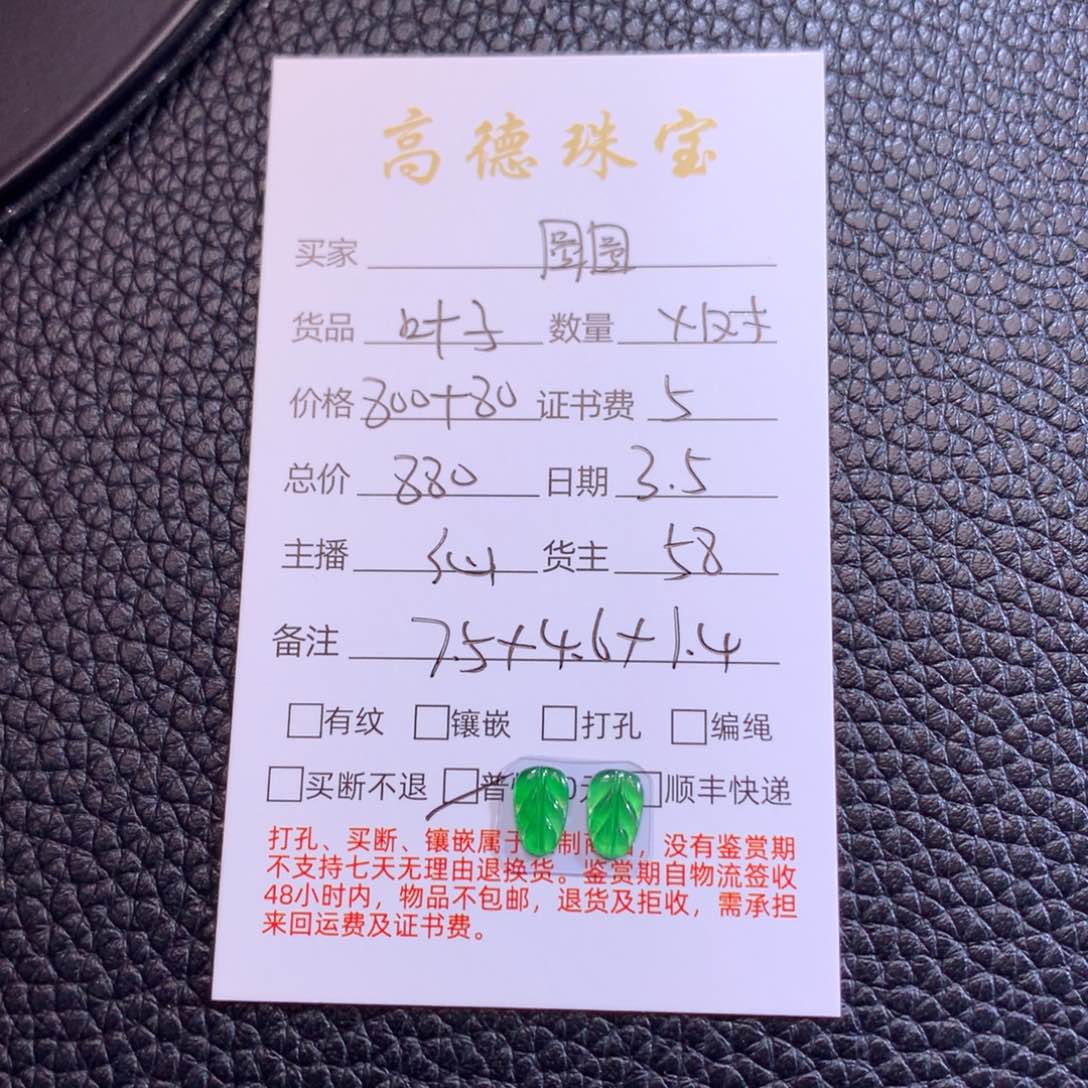 高德珠宝
买家 圆圆
货品 叶子 数量 X1对
价格 800+80 证书费 5
总价 880 日期 3.5
主播 货主 58
备注 7.5+4.6+1.4
有纹 镶嵌 打孔 编绳
买断不退 普 顺丰快递
打孔、买断、镶嵌属于 制 ，没有鉴赏期
不支持七天无理由退换货。鉴赏期自物流签收
48小时内，物品不包邮，退货及拒收，需承担
来回运费及证书费。